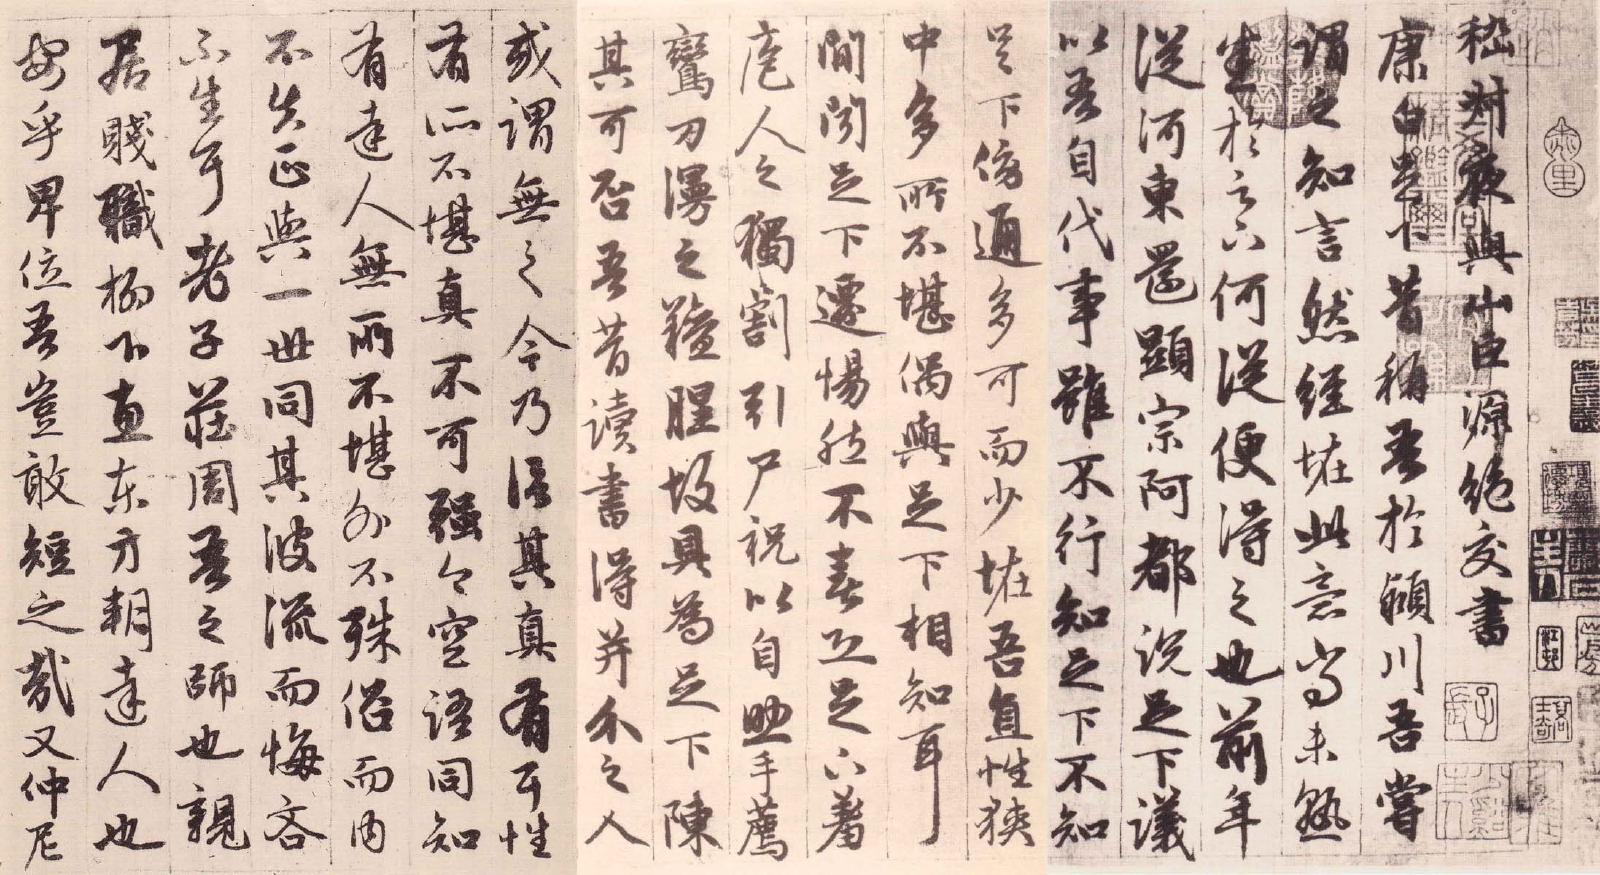 嵇叔夜與山巨源絕交書
康白足下昔稱吾於潁川吾嘗
謂之知言然經怪此意尚未熟
悉於足下何從便得之也前年
從河東還顯宗阿都說足下議
以吾自代事雖不行知足下不知
足下傍通多可而少怪吾直性狹
中多所不堪偶與足下相知耳
間聞足下遷惕然不喜恐足下羞
庖人之獨割引尸祝以自助手薦
鸞刀漫之羶腥故具為足下陳
其可否吾昔讀書得并介之人
或謂無之今乃信其真有耳性
有所不堪真不可強今空語同知
有達人無所不堪外不殊俗而內
不失正與一世同其波流而悔吝
不生耳老子莊周吾之師也親
居賤職柳下惠東方朔達人也
安乎卑位吾豈敢短之哉又仲尼